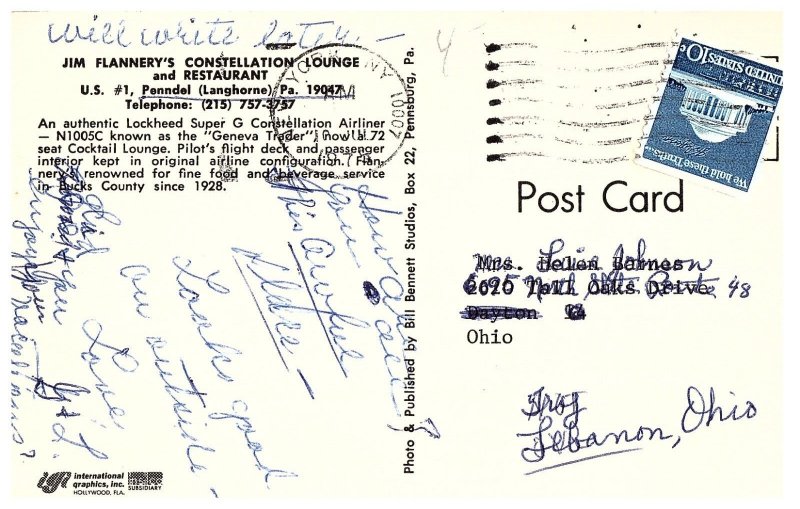 will write later —
JIM FLANNERY'S CONSTELLATION LOUNGE
and RESTAURANT
U.S. #1, Penndel (Langhorne) Pa. 19047
Telephone: (215) 757-3757
An authentic Lockheed Super G Constellation Airliner
— N1005C known as the "Geneva Trader", now a 72
seat Cocktail Lounge. Pilot's flight deck and passenger
interior kept in original airline configuration. Flan-
nery's renowned for fine food and beverage service
in Bucks County since 1928.
How are
you all,
This awful
place —
Looks good
on outside —
Love
Did
you
enjoy your
vacations?
international
graphics, inc.
HOLLYWOOD, FLA.
SUBSIDIARY
Photo & Published by Bill Bennett Studios, Box 22, Pennsburg, Pa.
NY 10007
UNITED STATES 10c
We hold these Truths...
Post Card
Mrs. Helen Barnes
Lois Johnson
2620 Tall Oaks Drive
6095 48
Dayton
Ohio
Troy
Lebanon, Ohio